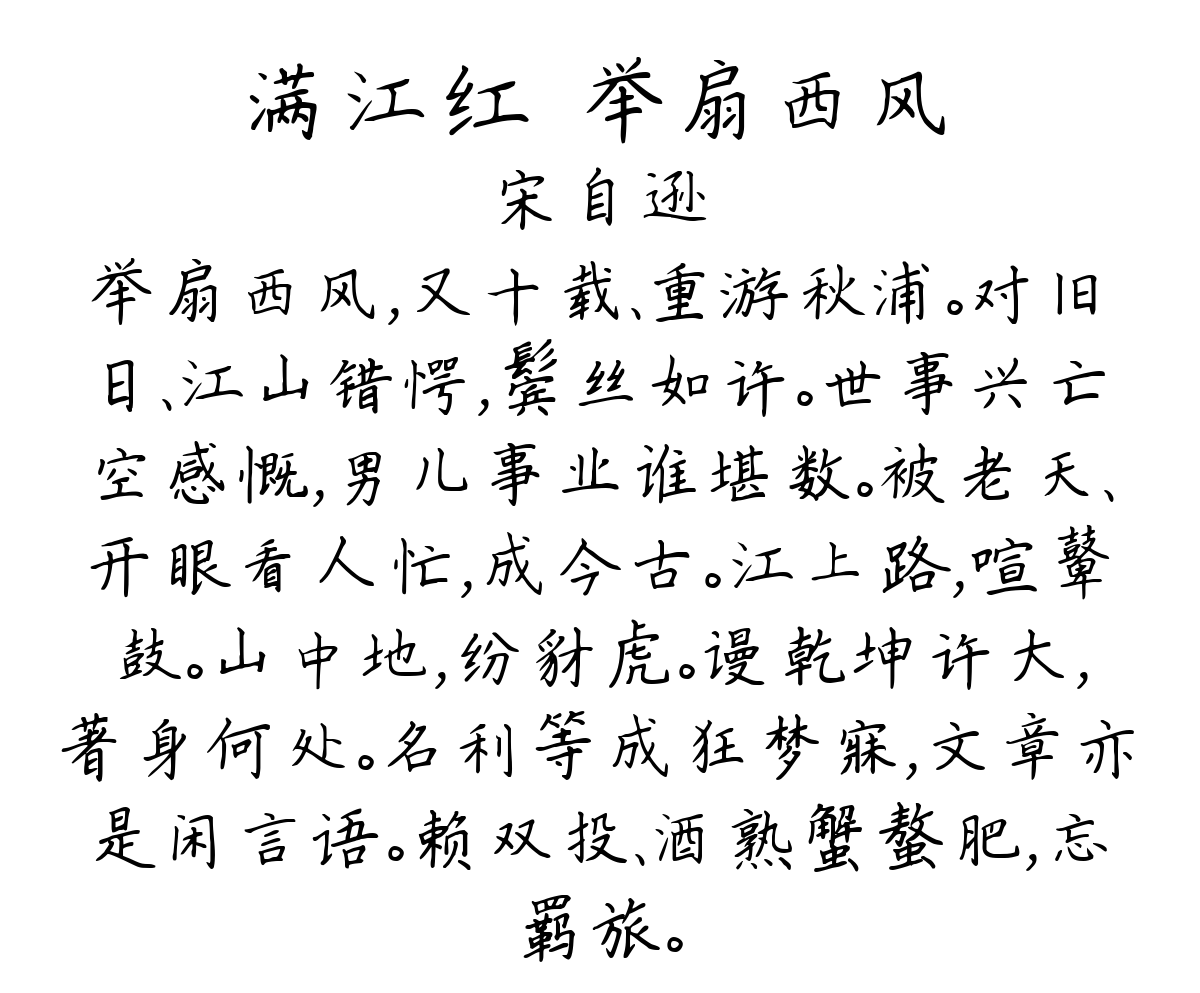 满江红 举扇西风
宋自逊
举扇西风,又十载、重游秋浦。对旧
日、江山错愕,鬓丝如许。世事兴亡
空感慨,男儿事业谁堪数。被老天、
开眼看人忙,成今古。江上路,喧鼙
鼓。山中地,纷豺虎。谩乾坤许大,
著身何处。名利等成狂梦寐,文章亦
是闲言语。赖双投、酒熟蟹螯肥,忘
羁旅。